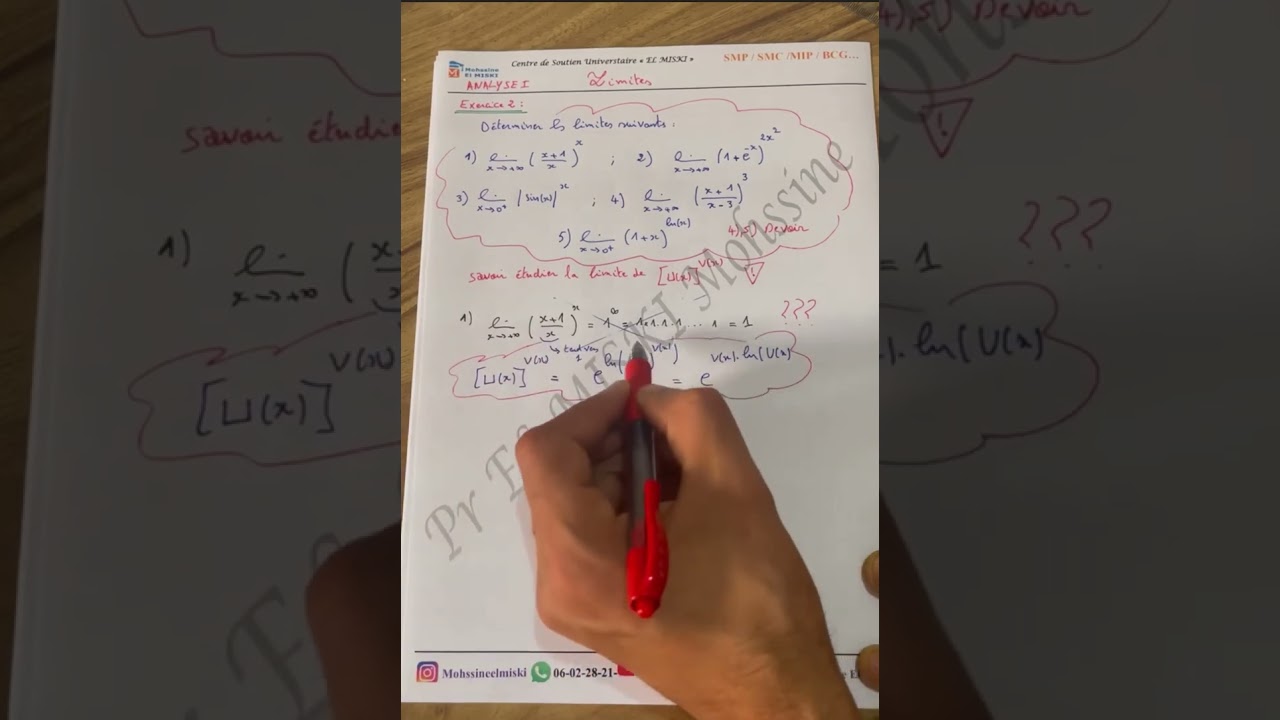 Mohssine
El MISKI
Centre de Soutien Universtaire « EL MISKI »
SMP / SMC /MIP / BCG…
ANALYSE I
Limites
Exercice 2 :
Déterminer les limites suivants :
1) lim x→+∞ ((x+1)/x)^x ; 2) lim x→+∞ (1+e^-x)^2x^2
3) lim x→0+ |sin(x)|^x ; 4) lim x→+∞ ((x+1)/(x-3))^3
5) lim x→0+ (1+x)^ln(x) 4),5) Devoir
savoir étudier la limite de [U(x)]^V(x) !
1) lim x→+∞ ((x+1)/x)^x = 1^∞ = 1.1.1.1... 1 = 1 ???
tend vers 1
[U(x)]^V(x) = e^ln( V(x)) = e^V(x).ln(U(x)
Pr EL MISKI Mohssine
Mohssineelmiski 06-02-28-21-